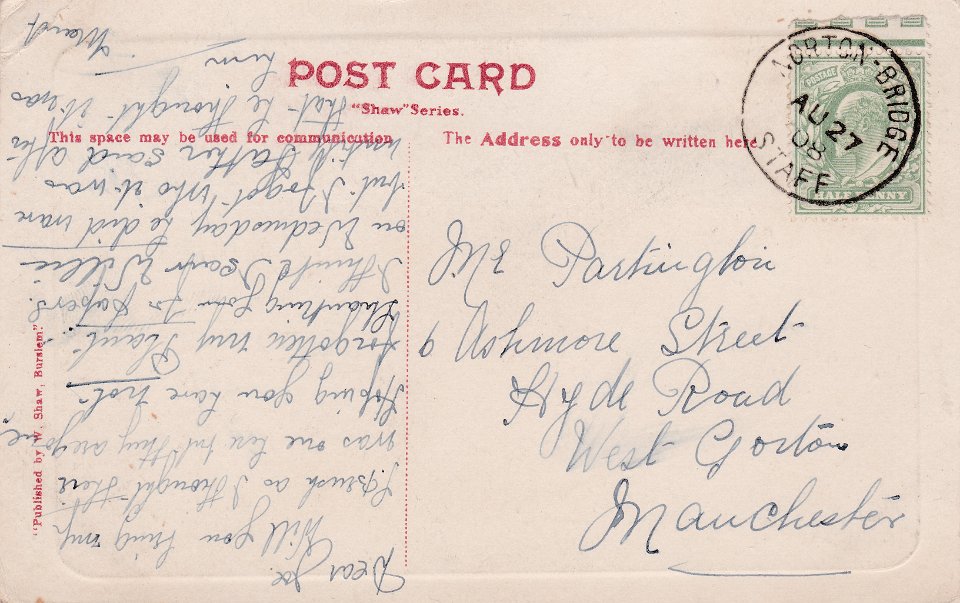 POST CARD
"Shaw" Series.
This space may be used for communication
The Address only to be written here
NORTON-BRIDGE
AU 27
08
STAFF
POSTAGE
HALF PENNY
Mr Partington
6 Ashmore Street
Hyde Road
West Gorton
Manchester
Dear Joe.
Will you bring my
as I thought there
was one here but they are gone
Hoping you have not
forgotten my Plant
thanking you for Papers.
I think I saw Willie
on Wednesday he did wave
but I forgot who it was
until Father said after
that he thought it was
him
Maud
"Published by W. Shaw, Burslem".